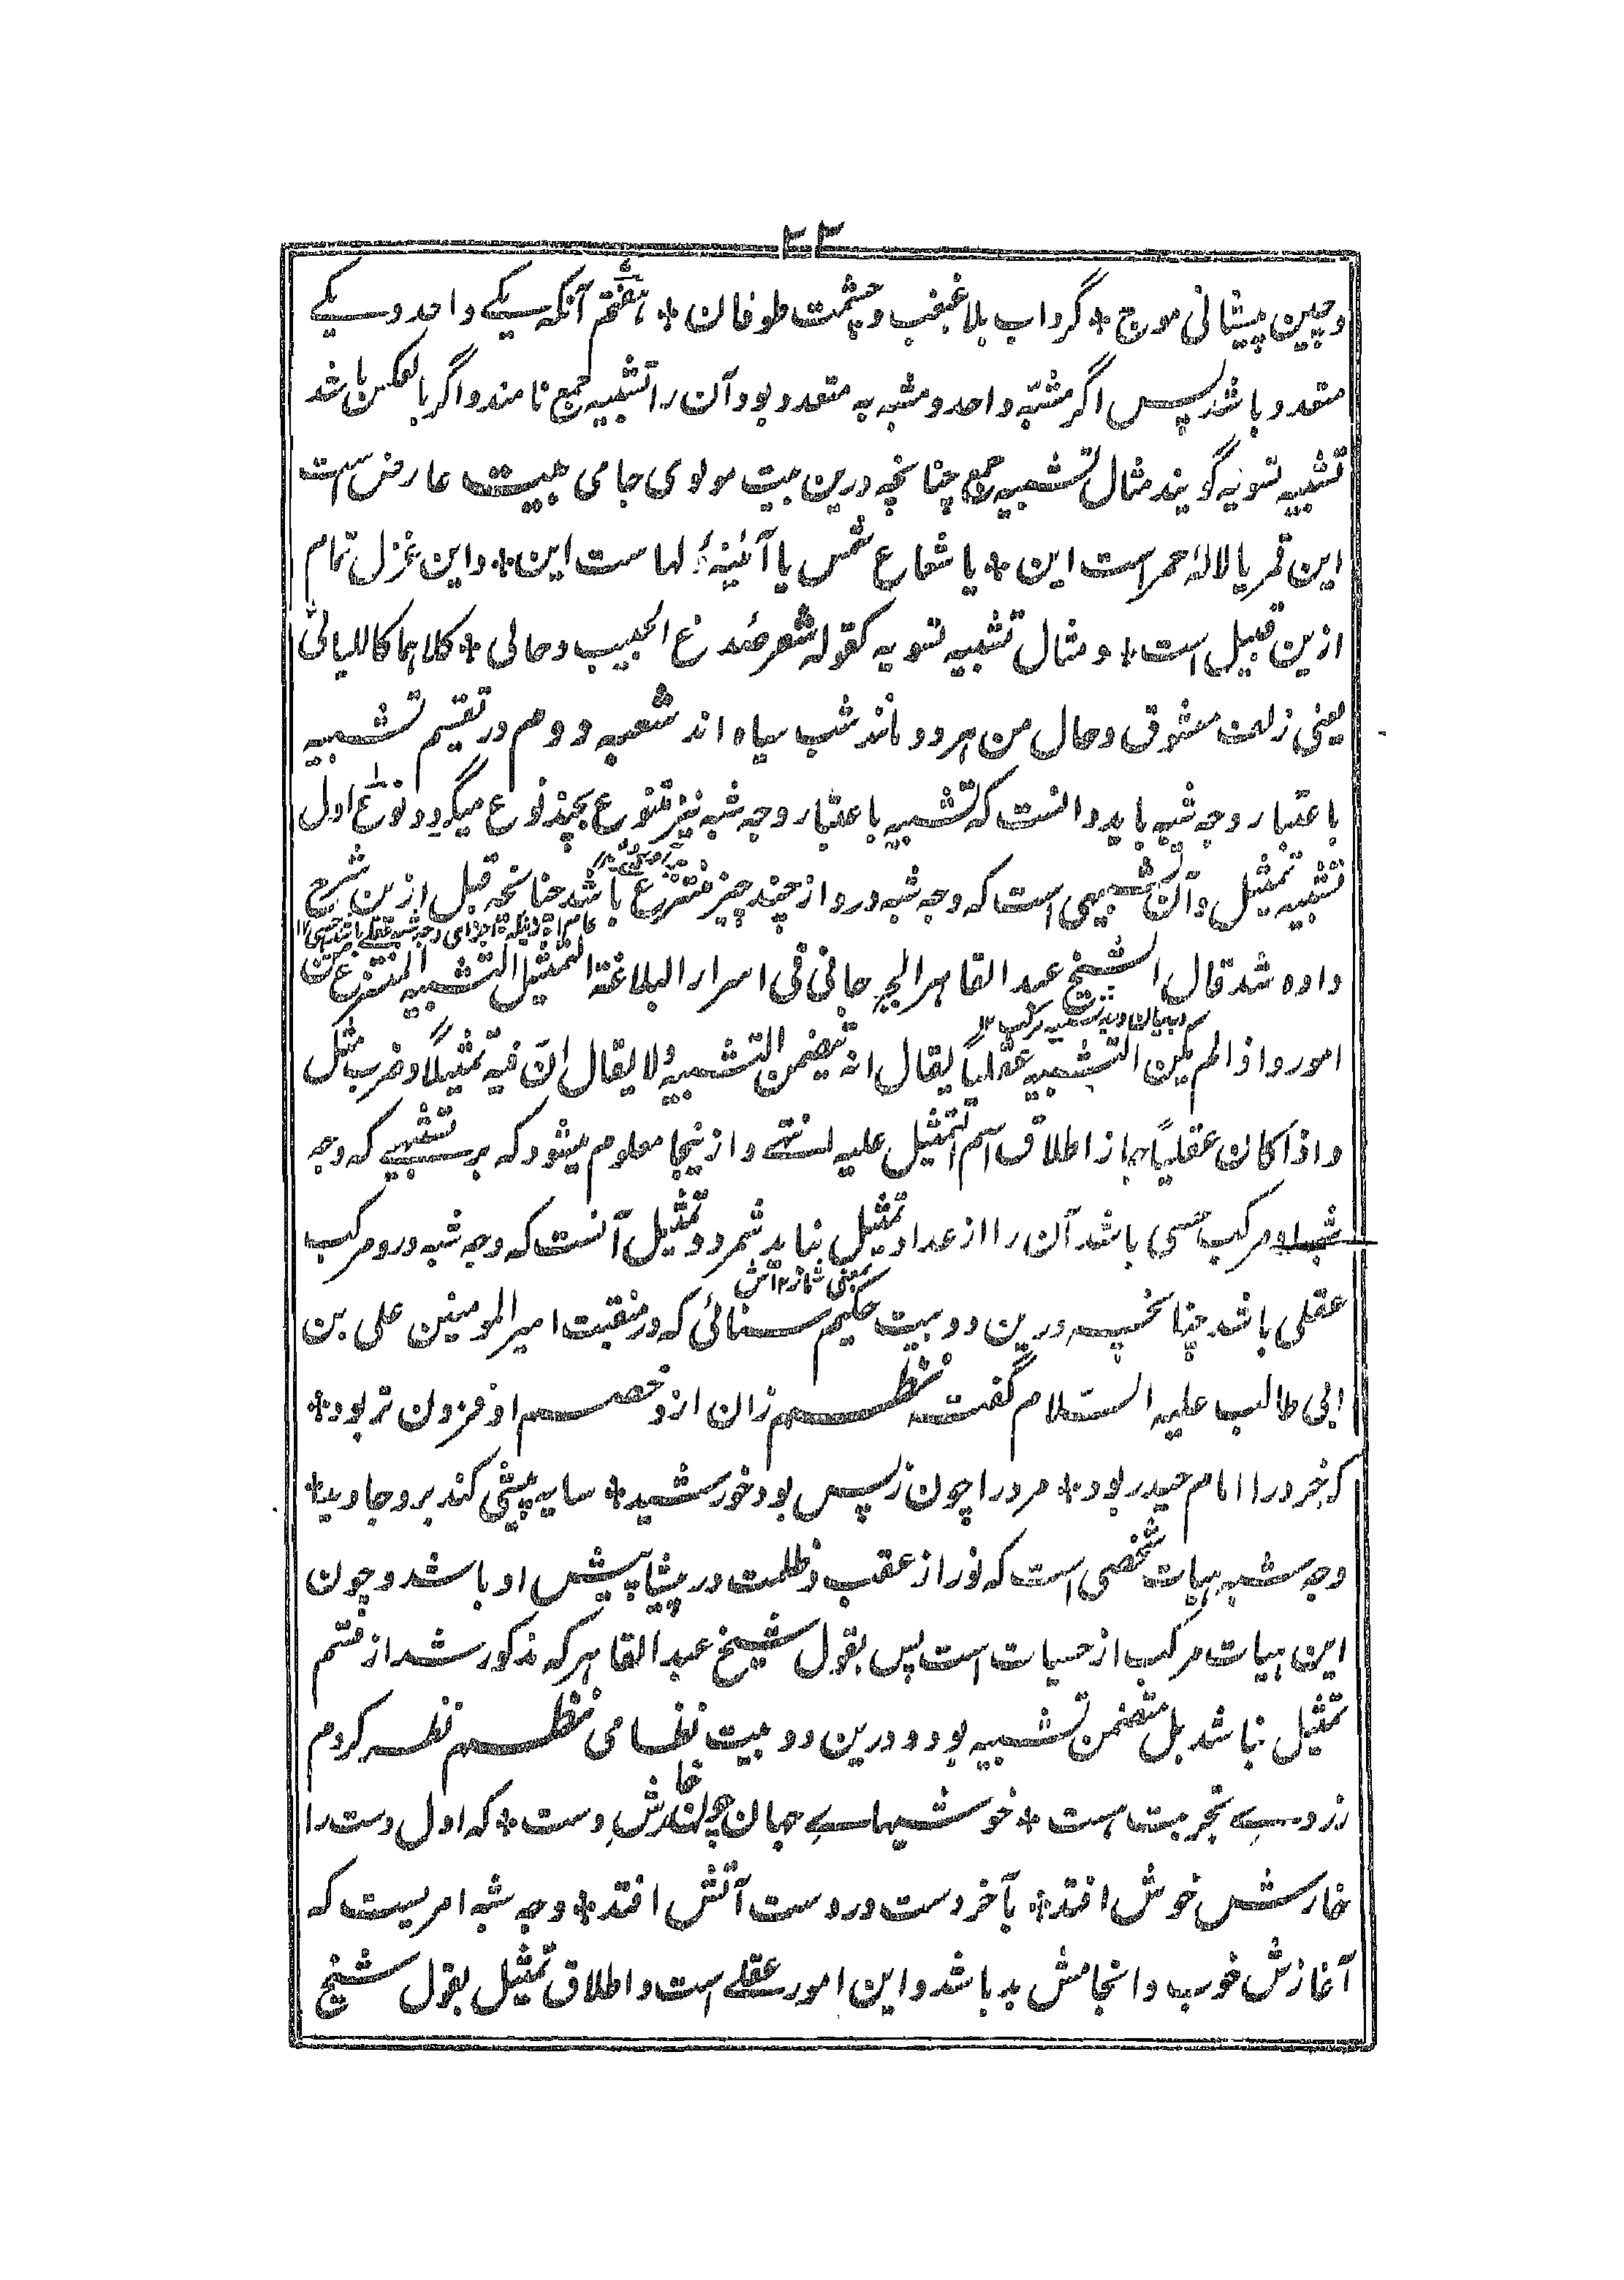 ۴۴
وچین پیشانی موج * گرداب بلا غبغب وچشمت طوفان * هفتم آنکه یکے واحد و یکے
متعدد باشد پس اگر مشبّه واحد و مشبه به متعدد بود آن را تشبیه جمع نامند و اگر بالعکس باشد
تشبیه تسویه گویند مثال تشبیه جمع چنانچه درین بیت مولوی جامی بیت عارض است
این قمر یا لالۂ حمر است این * یا شعاع شمس یا آئینۂ لها ست این * و این غزل تمام
ازین قبیل است * و مثال تشبیه تسویه کقوله شعر صُدغ الحبیب وحالی * کلاهما کاللیالیْ
یعنی زلف معشوق و حال من هر دو مانند شب سیاه اند شعبه دوم در تقسیم تشبیه
باعتبار وجه شبه باید دانست که تشبیه باعتبار وجه شبه نیز متنوع بچند نوع میگردد نوع اول
تشبیه تمثیل و آن تشبیهی است که وجه شبه درو از چند چیز منتزع باشد چنانچه قبل ازین شرح
داده شد قال الشیخ عبد القاهر الجرجانی فی اسرار البلاغة التمثیل التشبیه المنتزع من
امور و اذا لم یکن التشبیه عقلیاً یقال انه یتضمن التشبیه ولا یقال انّ فیه تمثیلاً و ضرب مثل
و اذا کان عقلیاً جاز اطلاق اسم التمثیل علیه انتہے و ازینجا معلوم میشود که هر تشبیهے که وجه
شبه او مرکب حسی باشد آن را از عداد تمثیل نباید شمرد و تمثیل آنست که وجه شبه درو مرکب
یعنی شمارد آتش
عقلی باشد چنانچه درین دو بیت حکیم سنائی که در منقبت امیر المومنین علی بن
ابی طالب علیه السلام گفته نظم زان ازو خصم او فزون تر بود *
که خرد را امام حیدر بود * مرد را چون ز پس بود خورشید * سایه پیشی کند برو جاوید *
وجه شبه هیات شخصی است که نور از عقب و ظلمت در پیشاپیش او باشد و چون
این هیات مرکب از حسیات است پس بقول شیخ عبد القاهر که مذکور شد از قسم
تمثیل نباشد بل متضمن تشبیه بود و درین دو بیت نظامی نظم نظر کردم
ز روے تجربت هست * خوشیهاے جهان چون خارش دست * که اول دست را
خارش خوش افتد * بآخر دست در دست آتش افتد * وجه شبه امریست که
آغازش خوب و انجامش بد باشد و این امور عقلے است و اطلاق تمثیل بقول شیخ